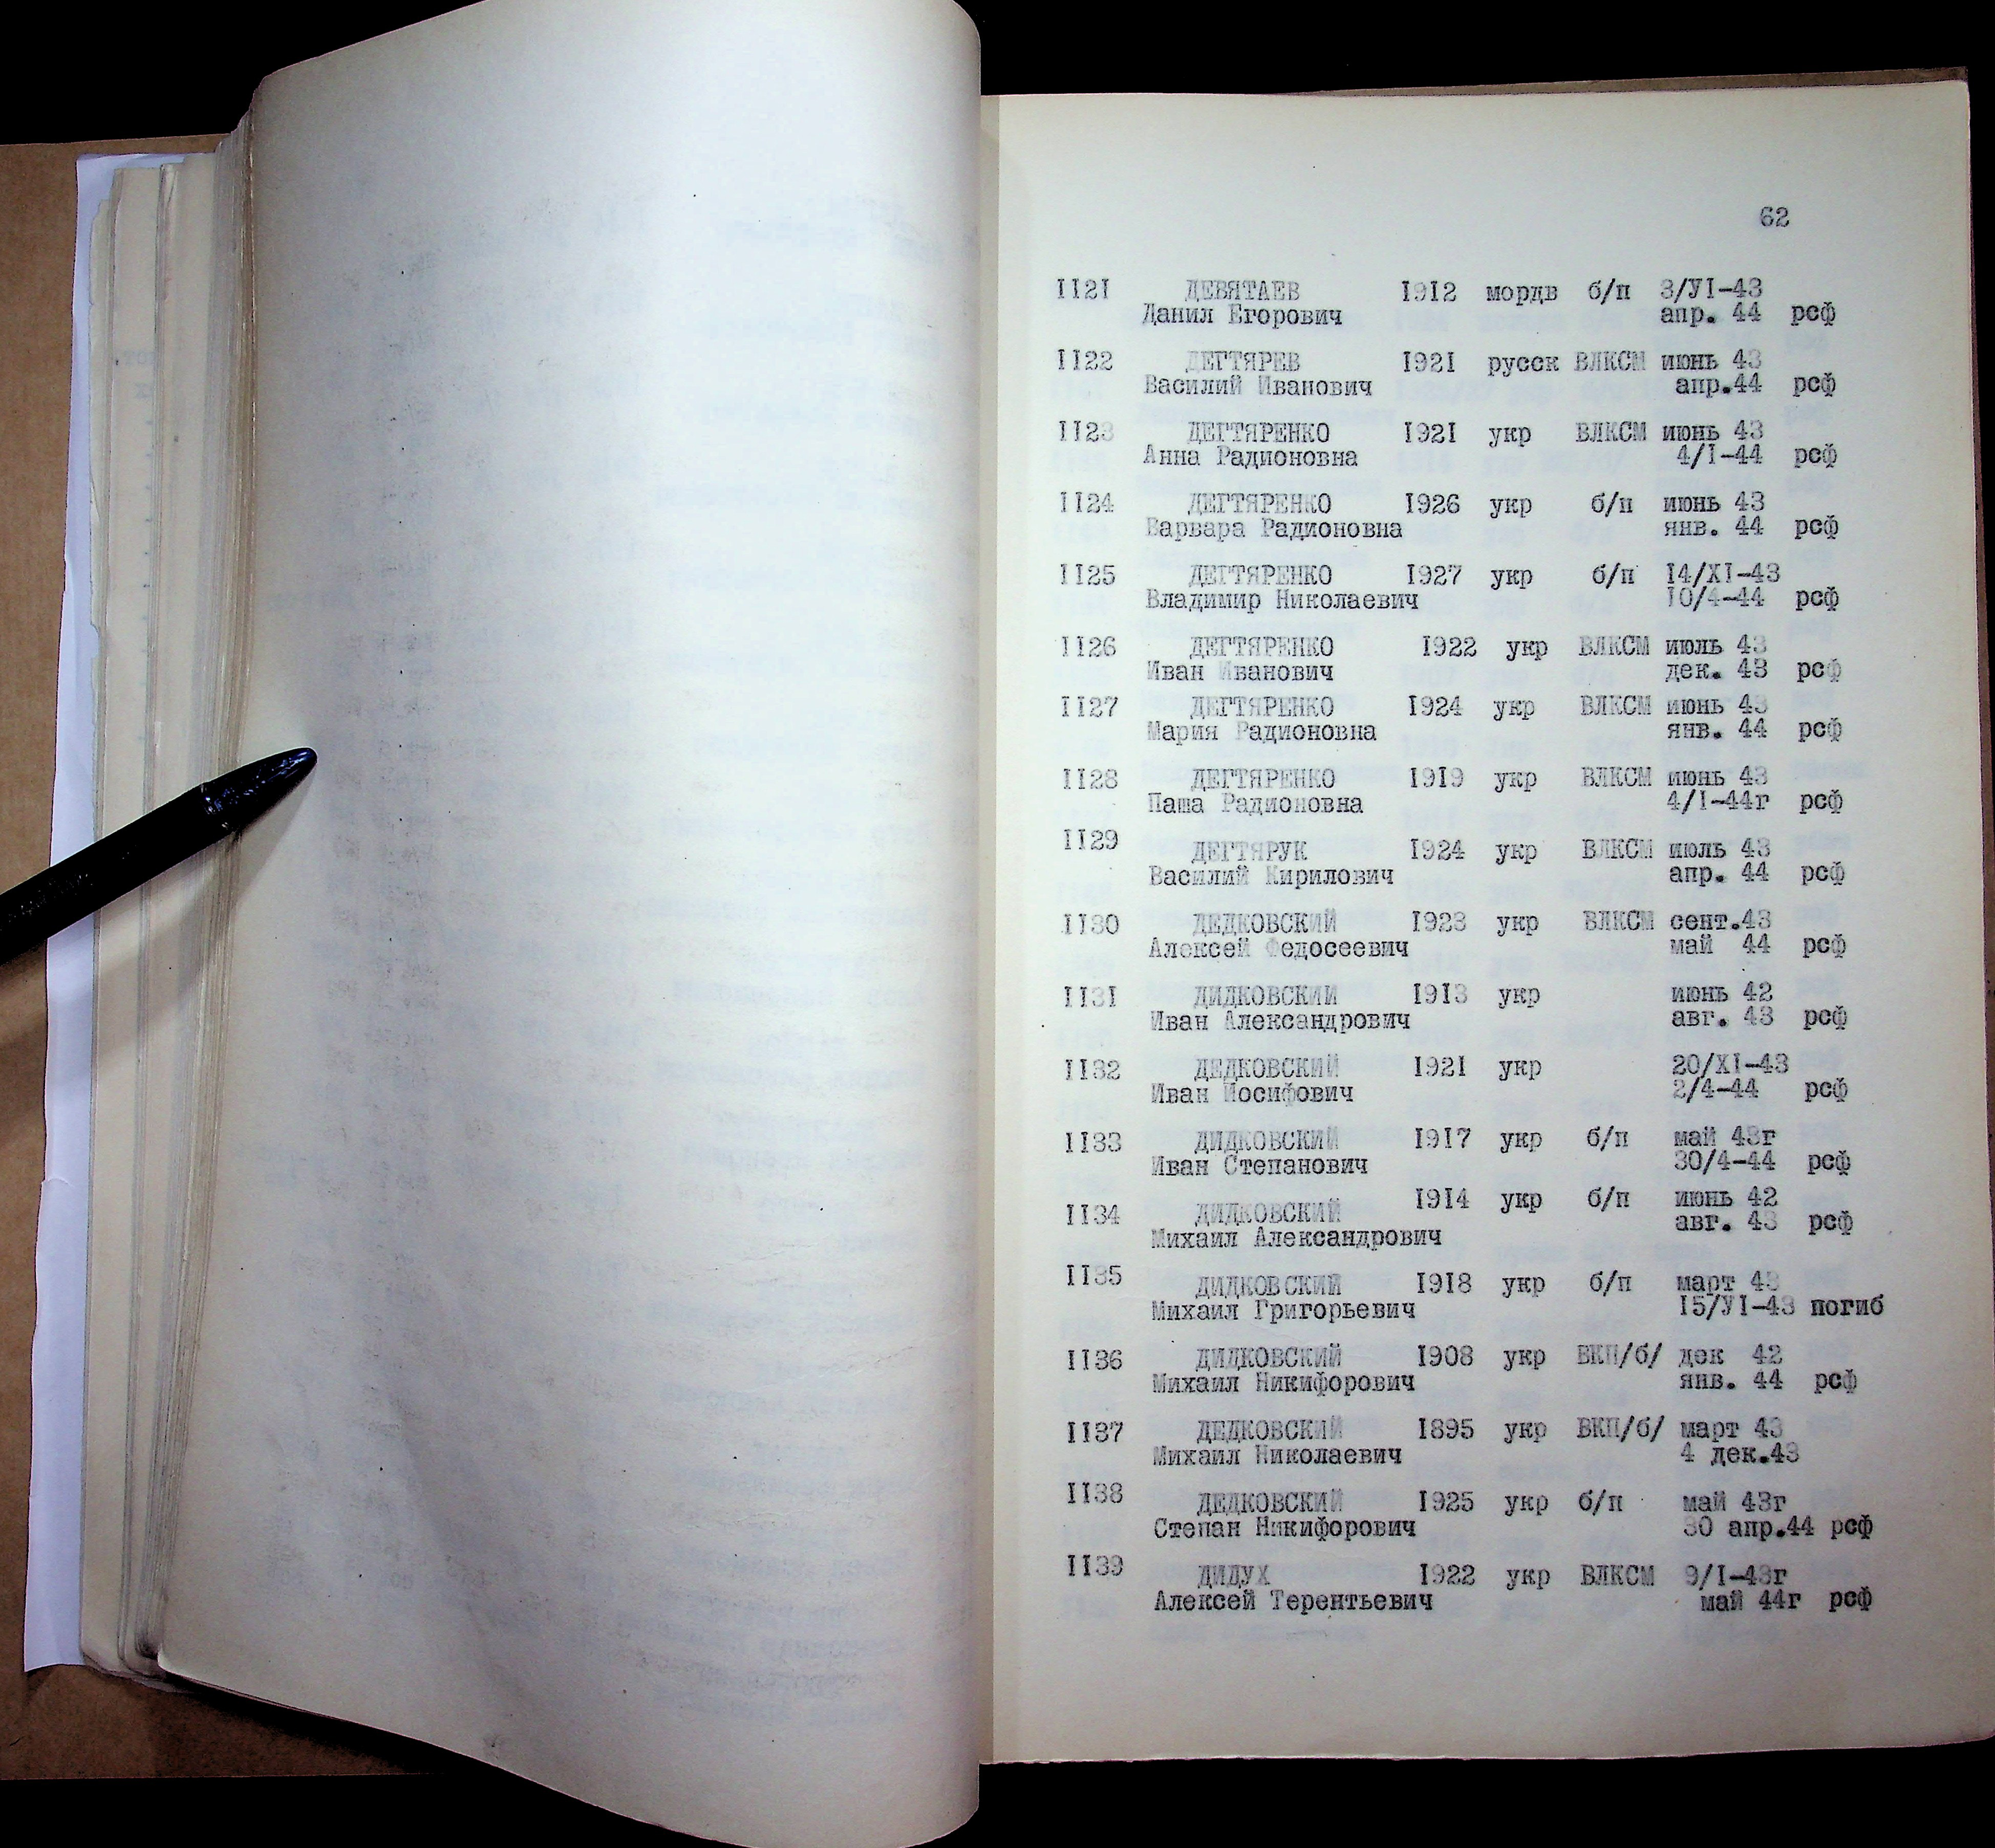 62
1121 ДЕВЯТАЕВ 1912 мордв б/п 3/УI-43
Данил Егорович апр. 44 рсф
1122 ДЕГТЯРЕВ 1921 русск ВЛКСМ июнь 43
Василий Иванович апр.44 рсф
1123 ДЕГТЯРЕНКО 1921 укр ВЛКСМ июнь 43
Анна Радионовна 4/I-44 рсф
1124 ДЕГТЯРЕНКО 1926 укр б/п июнь 43
Варвара Радионовна янв. 44 рсф
1125 ДЕГТЯРЕНКО 1927 укр б/п 14/XI-43
Владимир Николаевич 10/4-44 рсф
1126 ДЕГТЯРЕНКО 1922 укр ВЛКСМ июль 43
Иван Иванович дек. 43 рсф
1127 ДЕГТЯРЕНКО 1924 укр ВЛКСМ июнь 43
Мария Радионовна янв. 44 рсф
1128 ДЕГТЯРЕНКО 1919 укр ВЛКСМ июнь 43
Паша Радионовна 4/I-44г рсф
1129 ДЕГТЯРУК 1924 укр ВЛКСМ июль 43
Василий Кирилович апр. 44 рсф
1130 ДЕДКОВСКИЙ 1923 укр ВЛКСМ сент.43
Алексей Федосеевич май 44 рсф
1131 ДИДКОВСКИЙ 1913 укр июнь 42
Иван Александрович авг. 43 рсф
1132 ДЕДКОВСКИЙ 1921 укр 20/XI-43
Иван Иосифович 2/4-44 рсф
1133 ДИДКОВСКИЙ 1917 укр б/п май 43г
Иван Степанович 30/4-44 рсф
1134 ДИДКОВСКИЙ 1914 укр б/п июнь 42
Михаил Александрович авг. 43 рсф
1135 ДИДКОВСКИЙ 1918 укр б/п март 43
Михаил Григорьевич 15/УI-43 погиб
1136 ДИДКОВСКИЙ 1908 укр ВКП/б/ дек 42
Михаил Никифорович янв. 44 рсф
1137 ДЕДКОВСКИЙ 1895 укр ВКП/б/ март 43
Михаил Николаевич 4 дек.43
1138 ДЕДКОВСКИЙ 1925 укр б/п май 43г
Степан Никифорович 30 апр.44 рсф
1139 ДИДУХ 1922 укр ВЛКСМ 9/I-43г
Алексей Терентьевич май 44г рсф